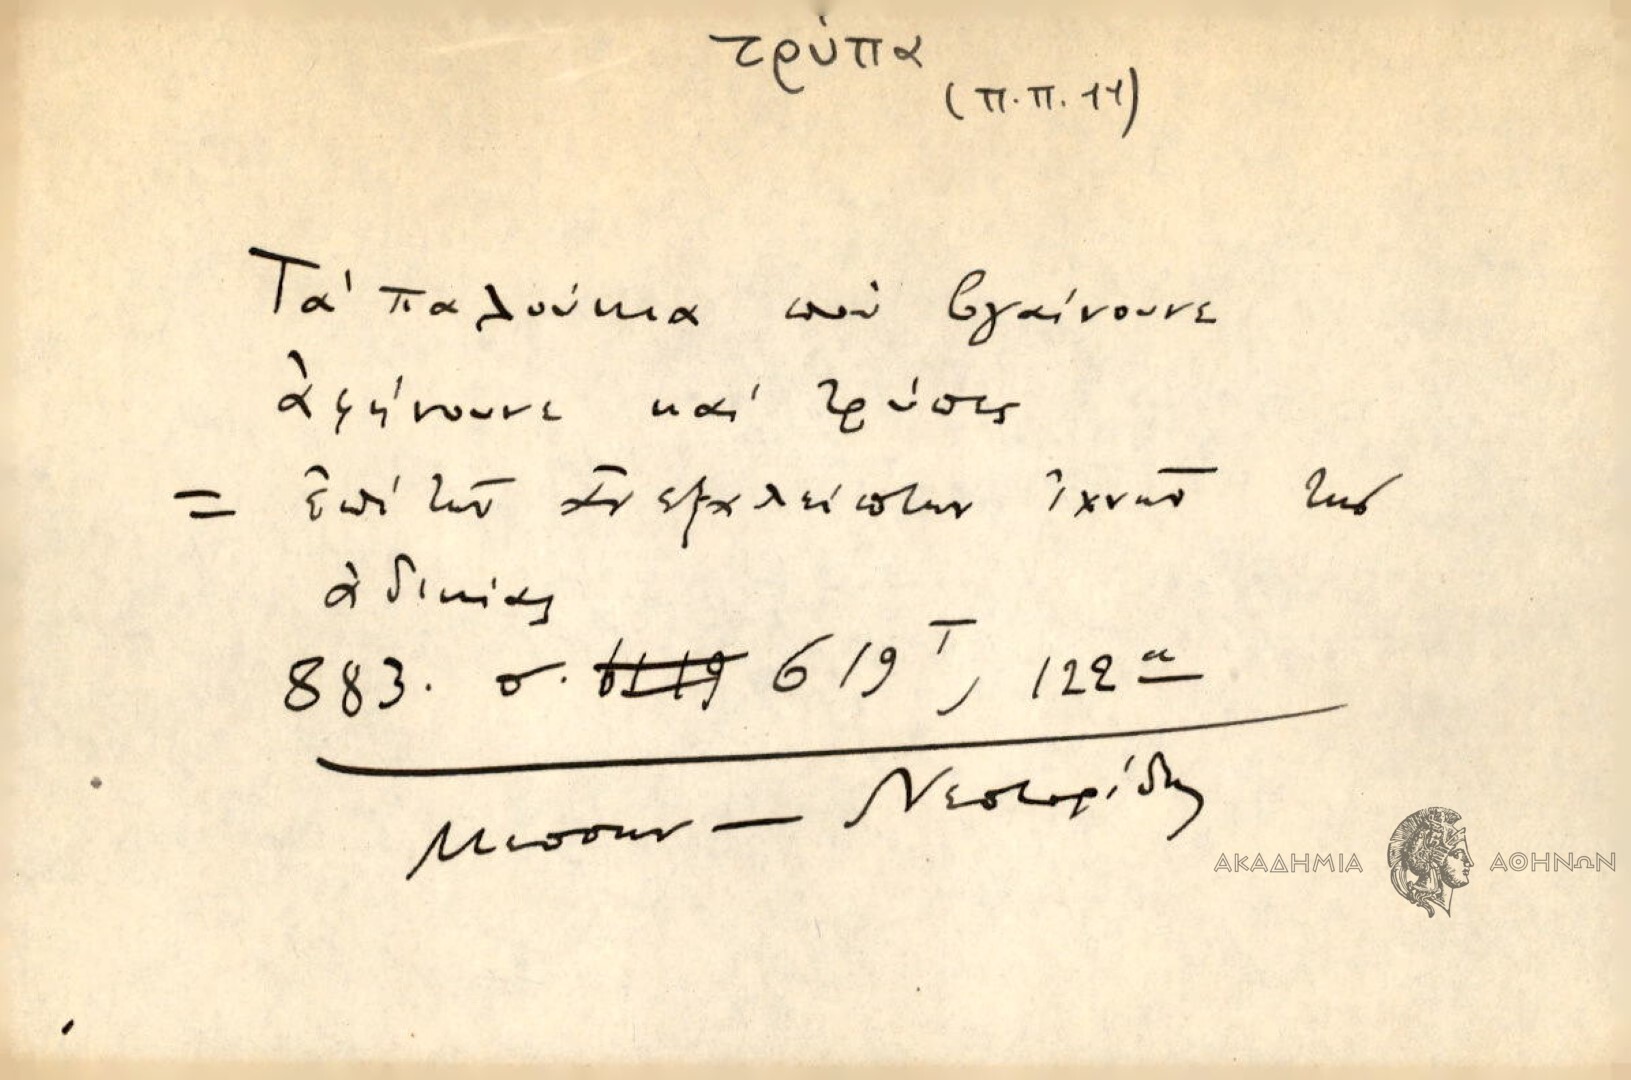 τρύπα
(Π.Π. 11)
Τά παλούκια πού βγαίνουνε
ἀφήνουνε καί τρύπες
= ἐπί τῶν ἀνεξαλείπτων ἰχνῶν τῆς
ἀδικίας
883. σ. 619 Τ, 122α
Μεσσην — Νεστορίδης
ΑΚΑΔΗΜΙΑ ΑΘΗΝΩΝ